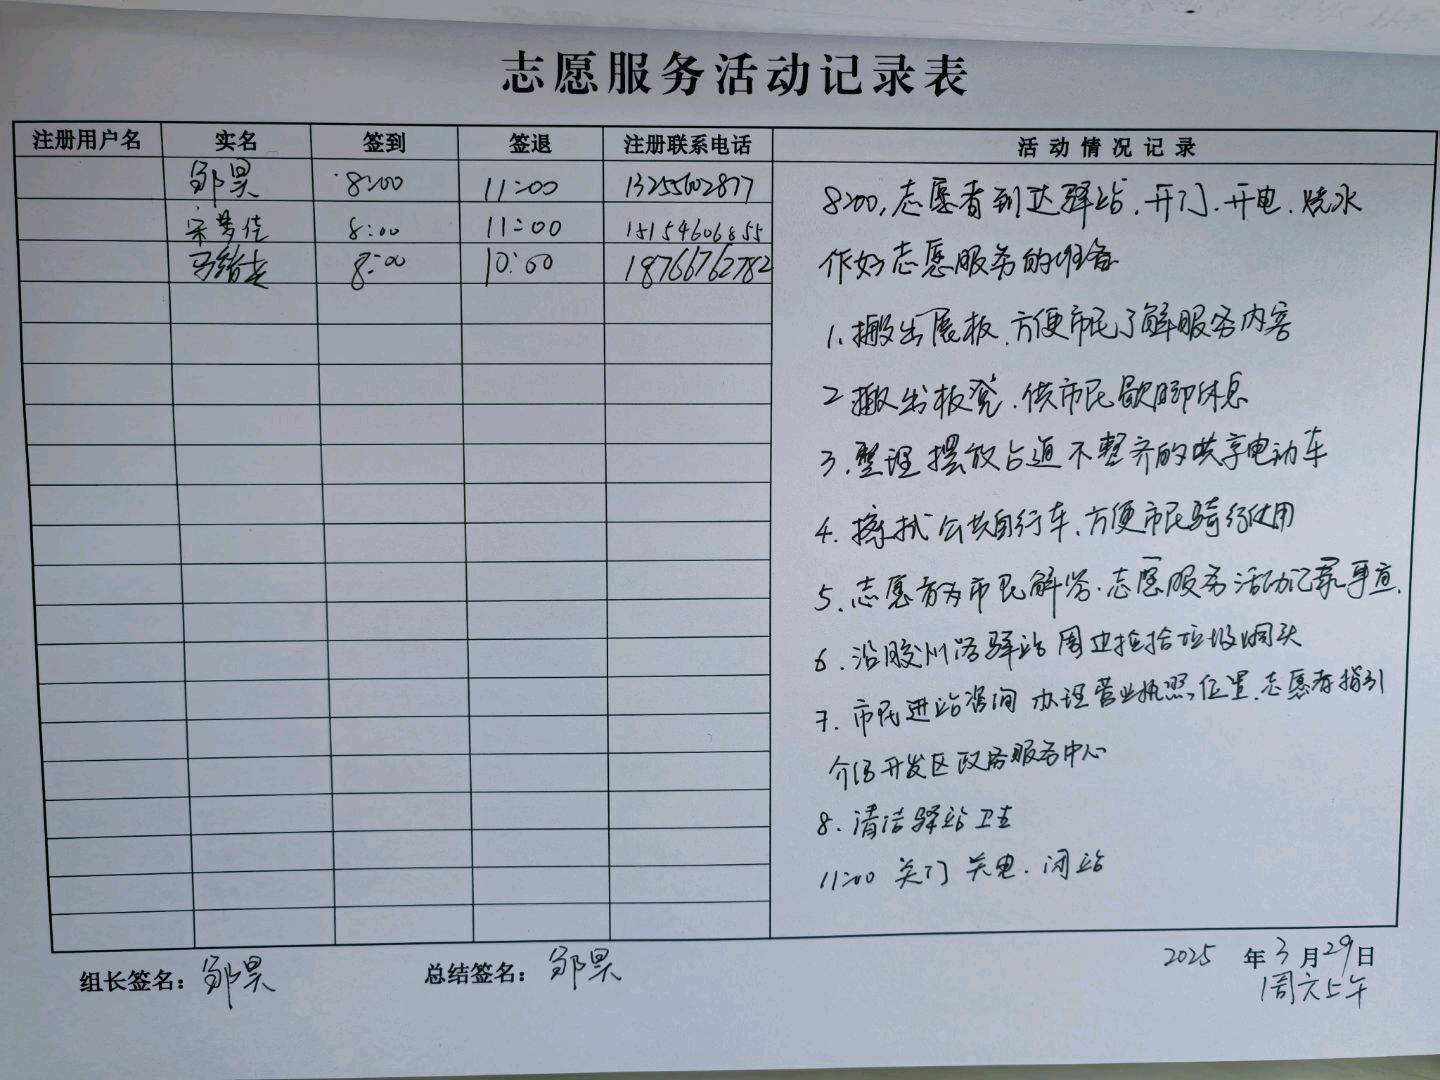 志愿服务活动记录表
注册用户名 实名 签到 签退 注册联系电话 活动情况记录
邹昊 8:00 11:00 13255602877
宋梦佳 8:00 11:00 15154606855
马绪 8:00 10:00 18766762782
8:00,志愿者到达驿站,开门.开电.烧水
作好志愿服务的准备
1.搬出展板,方便市民了解服务内容
2 搬出板凳.供市民歇脚休息
3.整理摆放占道不整齐的共享电动车
4.擦拭公共自行车、方便市民骑行使用
5.志愿者为市民解答.志愿服务活动记录事宜.
6.沿胶州路驿站周边捡拾垃圾烟头
7.市民进站咨询办理营业执照位置.志愿者指引
介绍开发区政务服务中心
8.清洁驿站卫生
11:00 关门 关电.闭站
组长签名:邹昊 总结签名:邹昊 2025年3月29日
周六上午